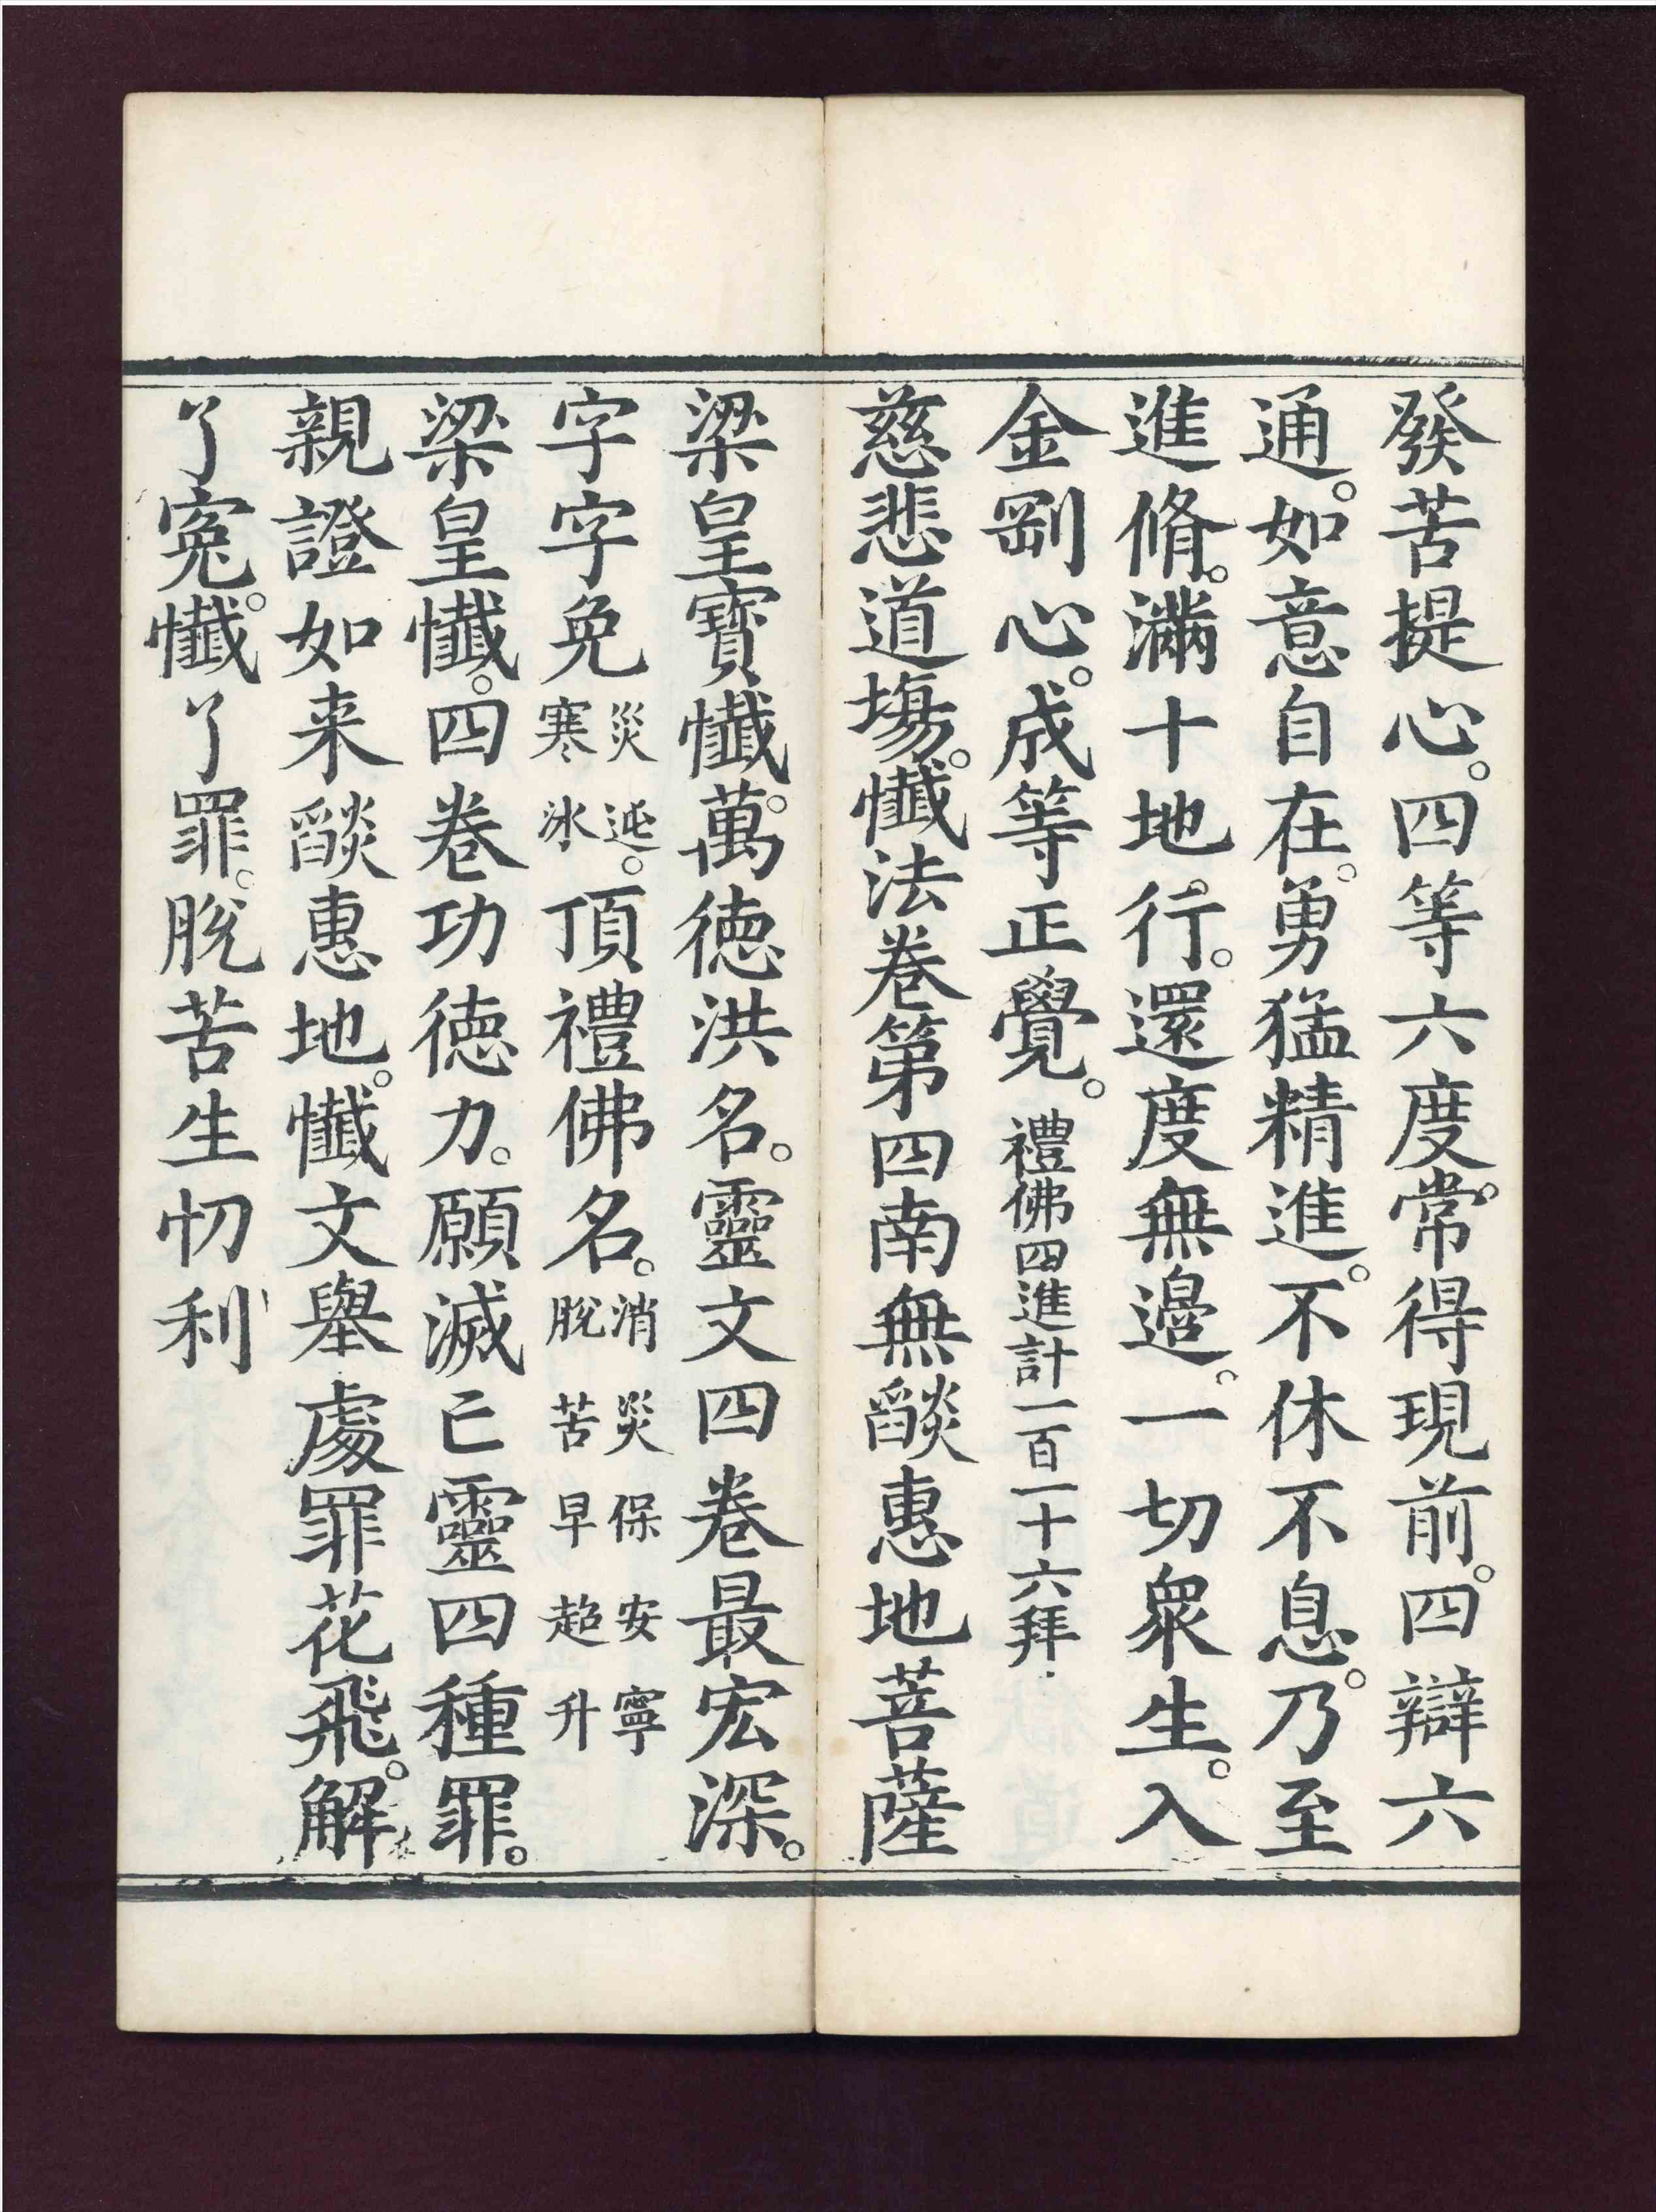 發苦提心。四等六度。常得現前。四辯六
通。如意自在。勇猛精進。不休不息。乃至
進脩。滿十地行。還度無邊。一切衆生。入
金剛心。成等正覺。禮佛四進計一百一十六拜
慈悲道場。懺法卷第四南無燄惠地菩薩
梁皇寶懺。萬徳洪名。靈文四卷最宏深。
字字免災迍。寒冰頂禮佛名。消災保安寧脫苦早超升
梁皇懺。四卷功徳力。願滅亡靈四種罪。
親證如来燄惠地。懺文舉處罪花飛。解
了寃。懺了罪。脫苦生忉利